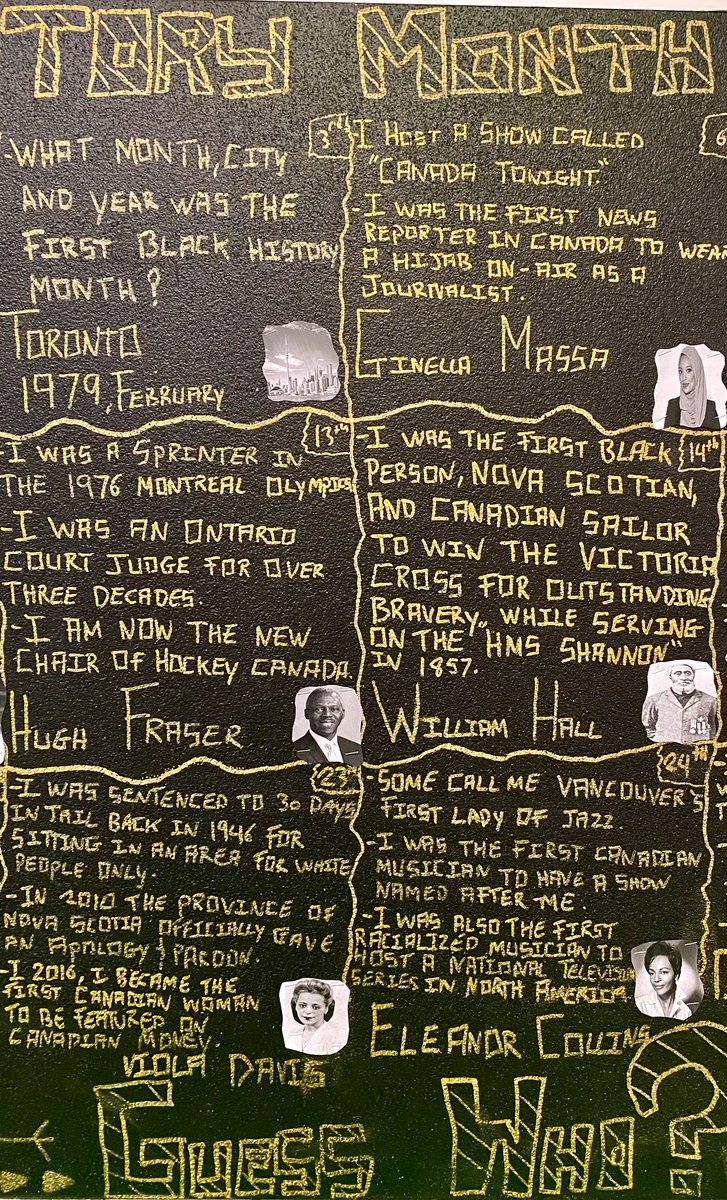 TORY MONTH
-WHAT MONTH, CITY
AND YEAR WAS THE
FIRST BLACK HISTORY
MONTH?
TORONTO
1979, FERRUARY
3rd
-I HOST A SHOW CALLED
"CANADA TONIGHT."
-I WAS THE FIRST NEWS
REPORTER IN CANADA TO WEAR
A HIJAB ON-AIR AS A
JOURNALIST.
GINELLA MASSA
6
-I WAS A SPRINTER IN
THE 1976 MONTREAL OLYMPICS
-I WAS AN ONTARIO
COURT JUDGE FOR OVER
THREE DECADES.
-I AM NOW THE NEW
CHAIR OF HOCKEY CANADA.
HUGH FRASER
13th
-I WAS THE FIRST BLACK
PERSON, NOVA SCOTIAN,
AND CANADIAN SAILOR
TO WIN THE VICTORIA
CROSS FOR OUTSTANDING
BRAVERY,, WHILE SERVING
ON THE "HMS SHANNON"
IN 1857.
WILLIAM HALL
14th
-I WAS SENTENCED TO 30 DAYS
IN TAIL BACK IN 1946 FOR
SITTING IN AN AREA FOR WHITE
PEOPLE ONLY.
-IN 2010 THE PROVINCE OF
NOVA SCOTIA OFFICIALLY GAVE
AN APOLOGY & PARDON.
-I 2016, I BECAME THE
FIRST CANADIAN WOMAN
TO BE FEATURED ON
CANADIAN MONEY.
VIOLA DAVIS
23rd
-SOME CALL ME VANCOUVER'S
FIRST LADY OF JAZZ.
-I WAS THE FIRST CANADIAN
MUSICIAN TO HAVE A SHOW
NAMED AFTER ME.
-I WAS ALSO THE FIRST
RACIALIZED MUSICIAN TO
HOST A NATIONAL TELEVISION
SERIES IN NORTH AMERICA
ELEANOR COLLINS
24th
GUESS WHO?